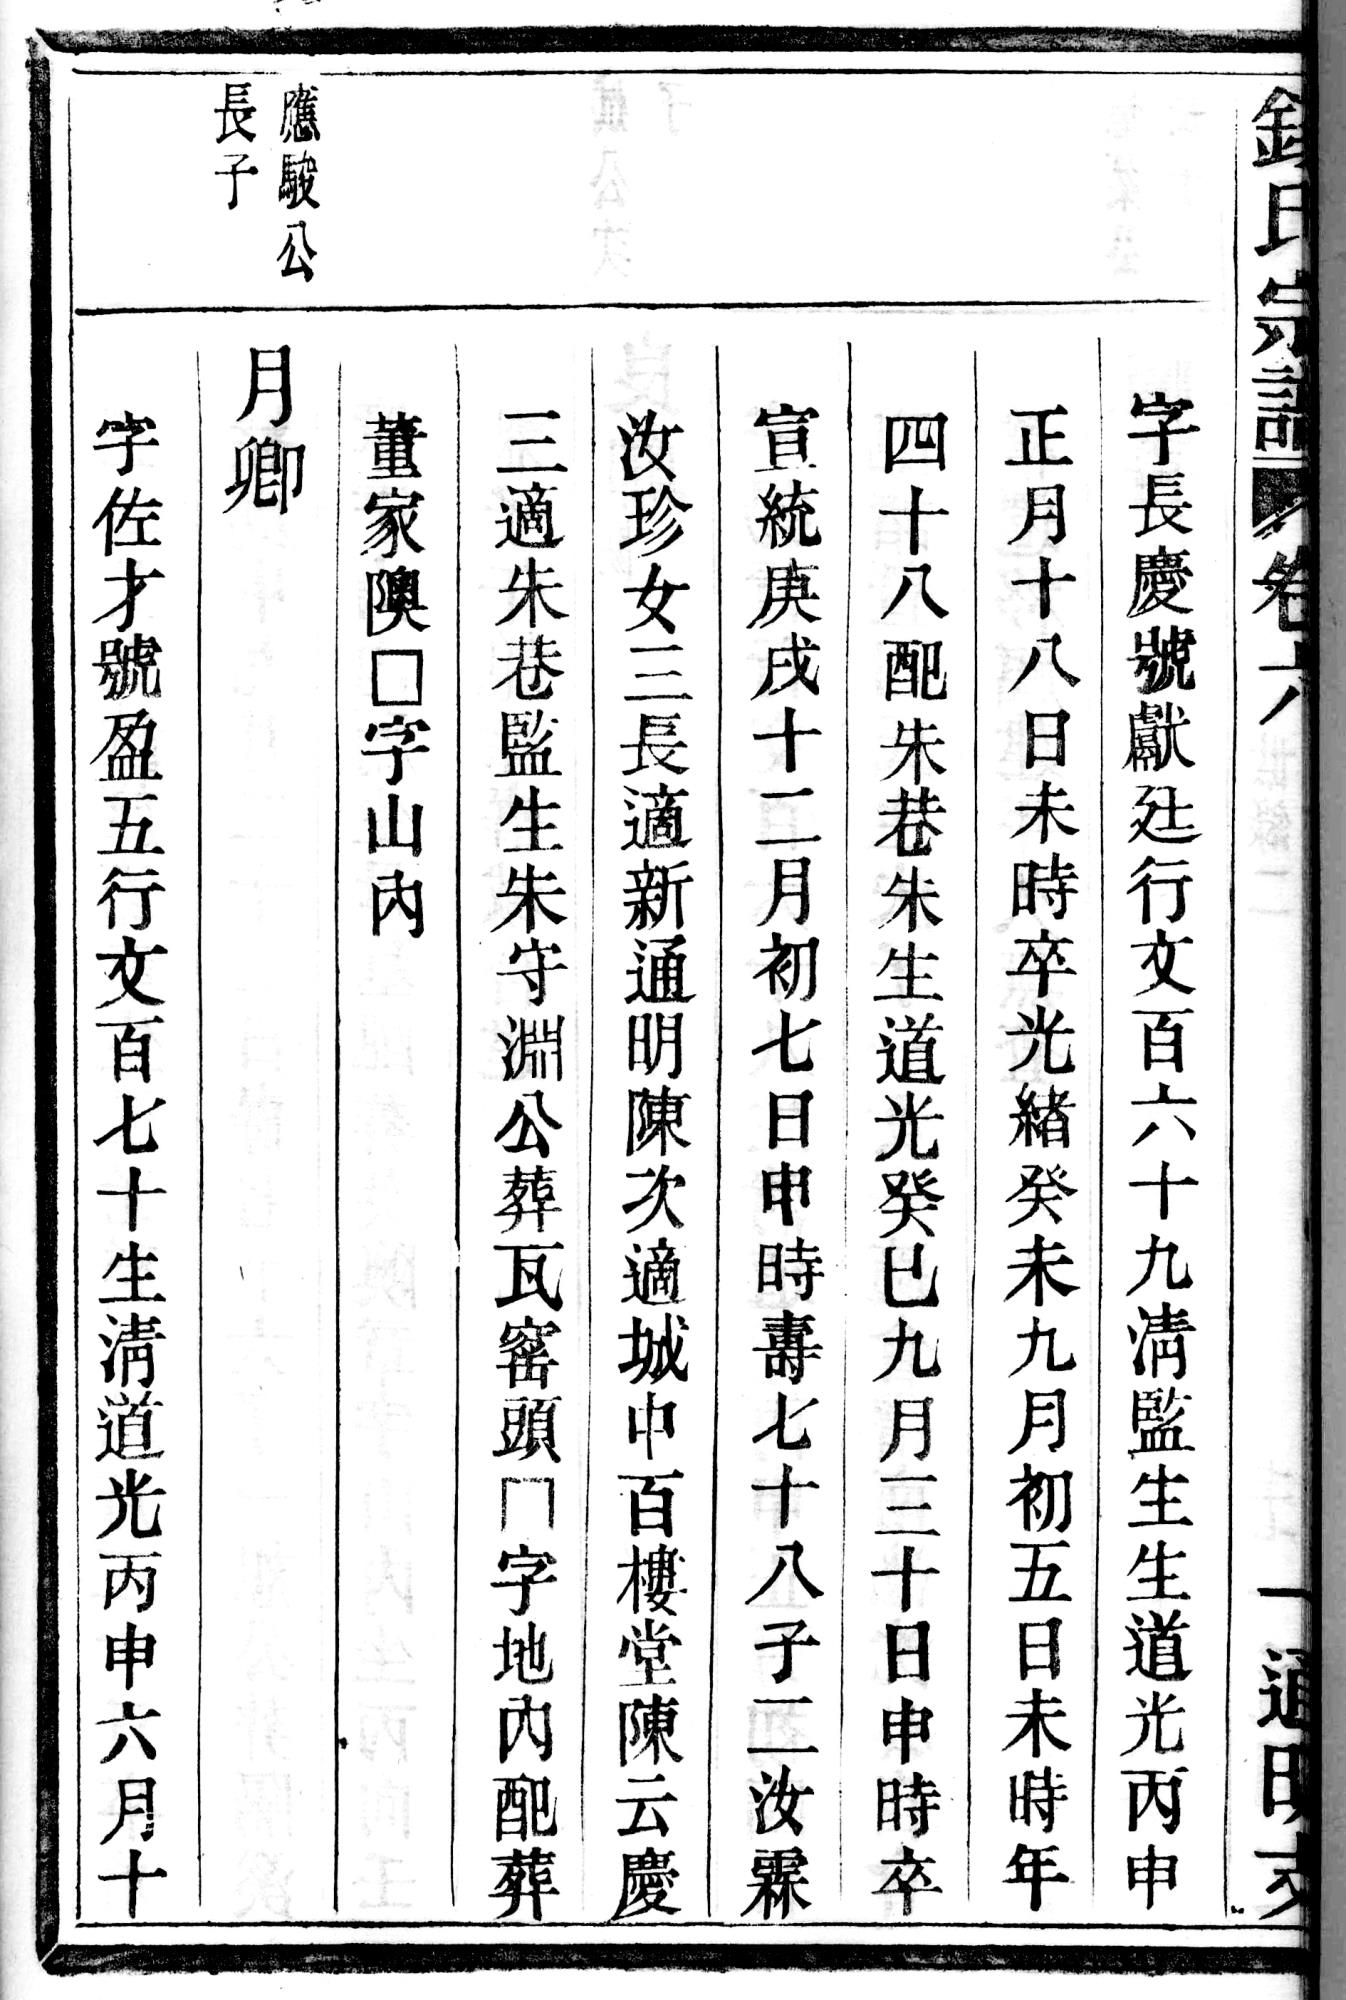 氏宗譜 卷六 一 通明支
字長慶號獻廷行文百六十九淸監生生道光丙申
正月十八日未時卒光緖癸未九月初五日未時年
四十八配朱巷朱生道光癸巳九月三十日申時卒
宣統庚戌十二月初七日申時壽七十八子二汝霖
汝珍女三長適新通明陳次適城中百樓堂陳云慶
三適朱巷監生朱守淵公葬瓦窰頭□字地內配葬
董家隩□字山內
應駿公
長子
月卿
字佐才號盈五行文百七十生淸道光丙申六月十